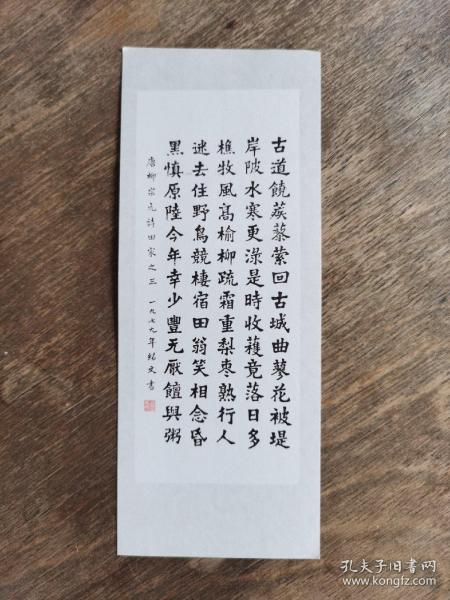 古道饒蒺藜縈回古城曲蓼花被堤
岸陂水寒更淥是時收穫竟落日多
樵牧風高榆柳疏霜重梨棗熟行人
迷去住野鳥競棲宿田翁笑相念昏
黑慎原陸今年幸少豐无厭饘與粥
唐柳宗元詩田家之三 一九七九年紹文書
孔夫子旧书网
www.kongfz.com